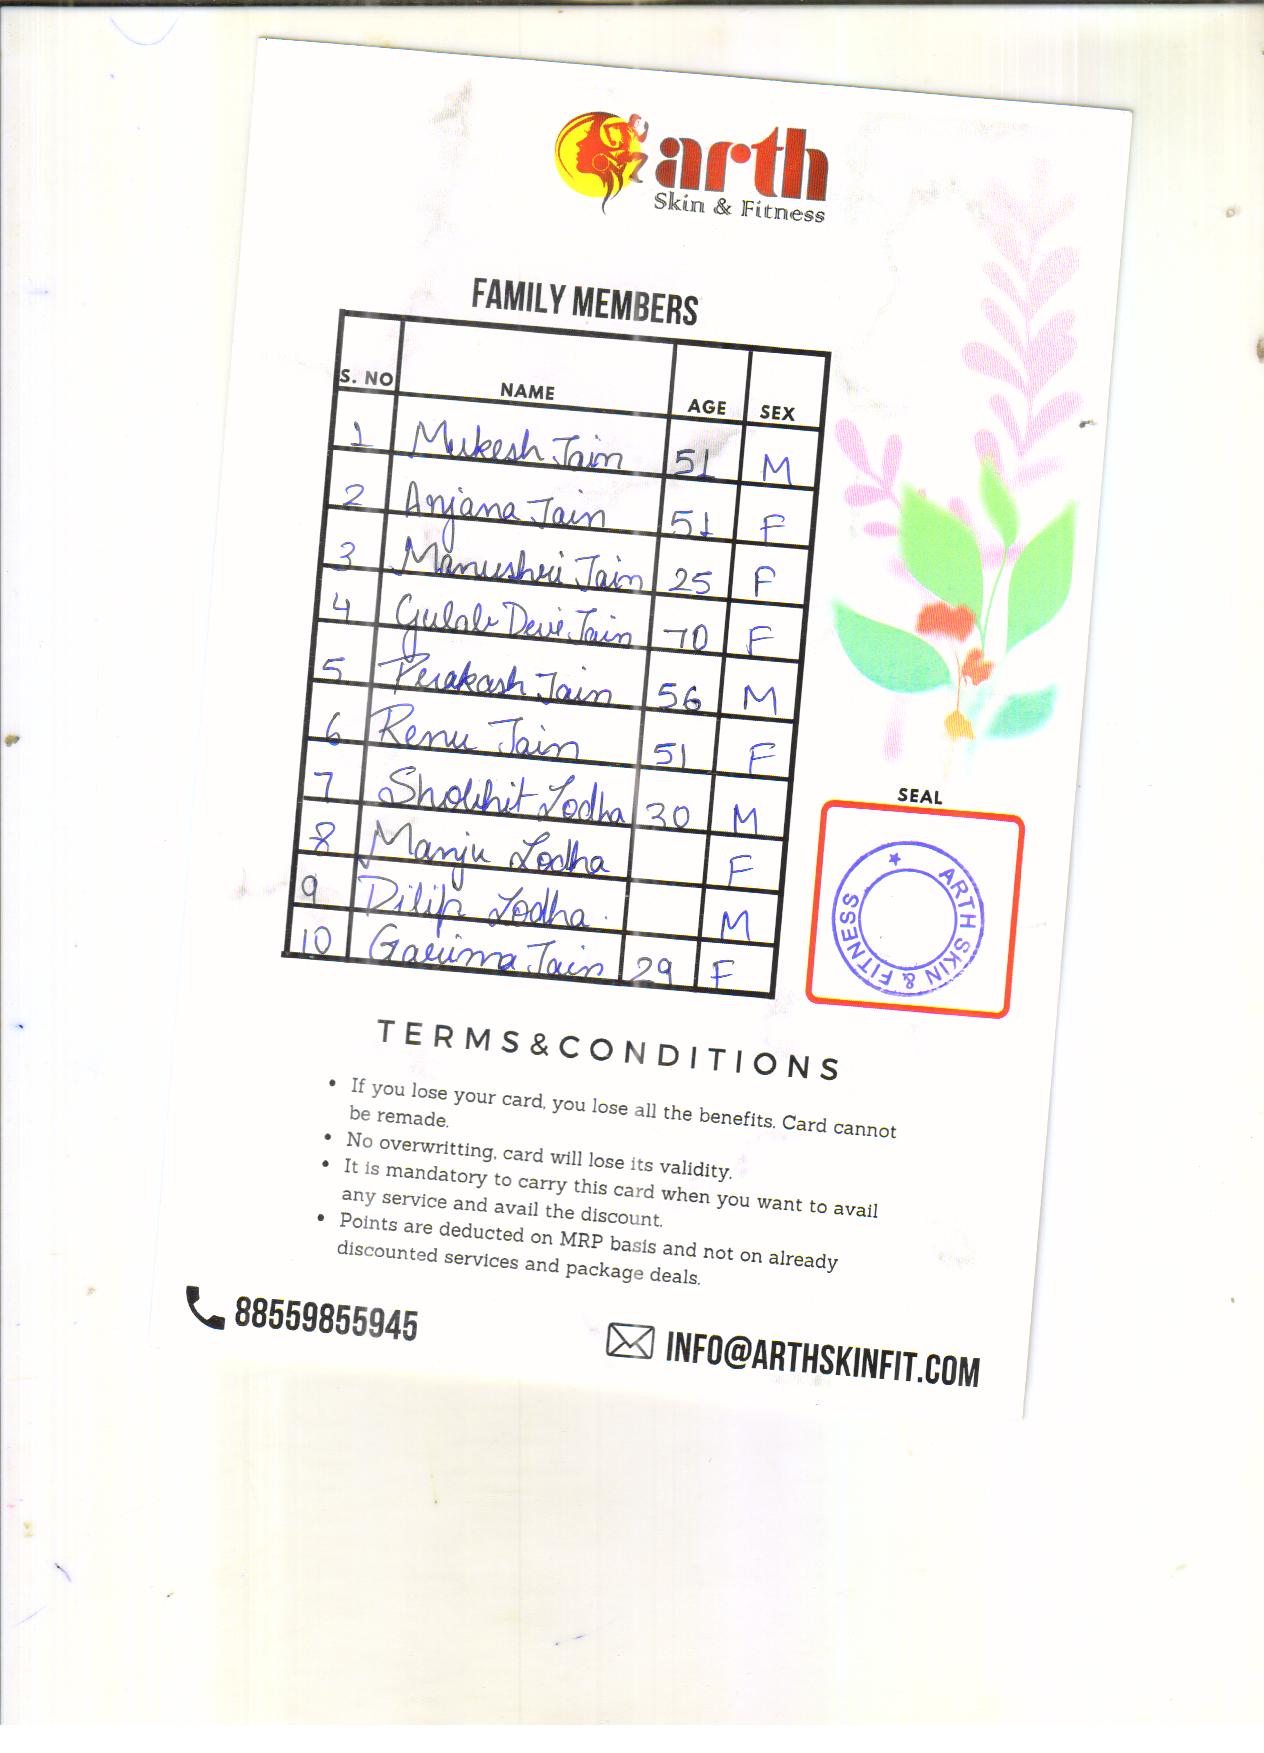 arth
Skin & Fitness
FAMILY MEMBERS
S. NO NAME AGE SEX
1 Mukesh Jain 51 M
2 Anjana Jain 51 F
3 Manushri Jain 25 F
4 Gulab Devi Jain 70 F
5 Prakash Jain 56 M
6 Renu Jain 51 F
7 Shobhit Lodha 30 M
8 Manju Lodha F
9 Dilip Lodha. M
10 Garima Jain 29 F
SEAL
ARTH SKIN & FITNESS
TERMS&CONDITIONS
• If you lose your card, you lose all the benefits. Card cannot
be remade.
• No overwritting, card will lose its validity.
• It is mandatory to carry this card when you want to avail
any service and avail the discount.
• Points are deducted on MRP basis and not on already
discounted services and package deals.
88559855945
INFO@ARTHSKINFIT.COM